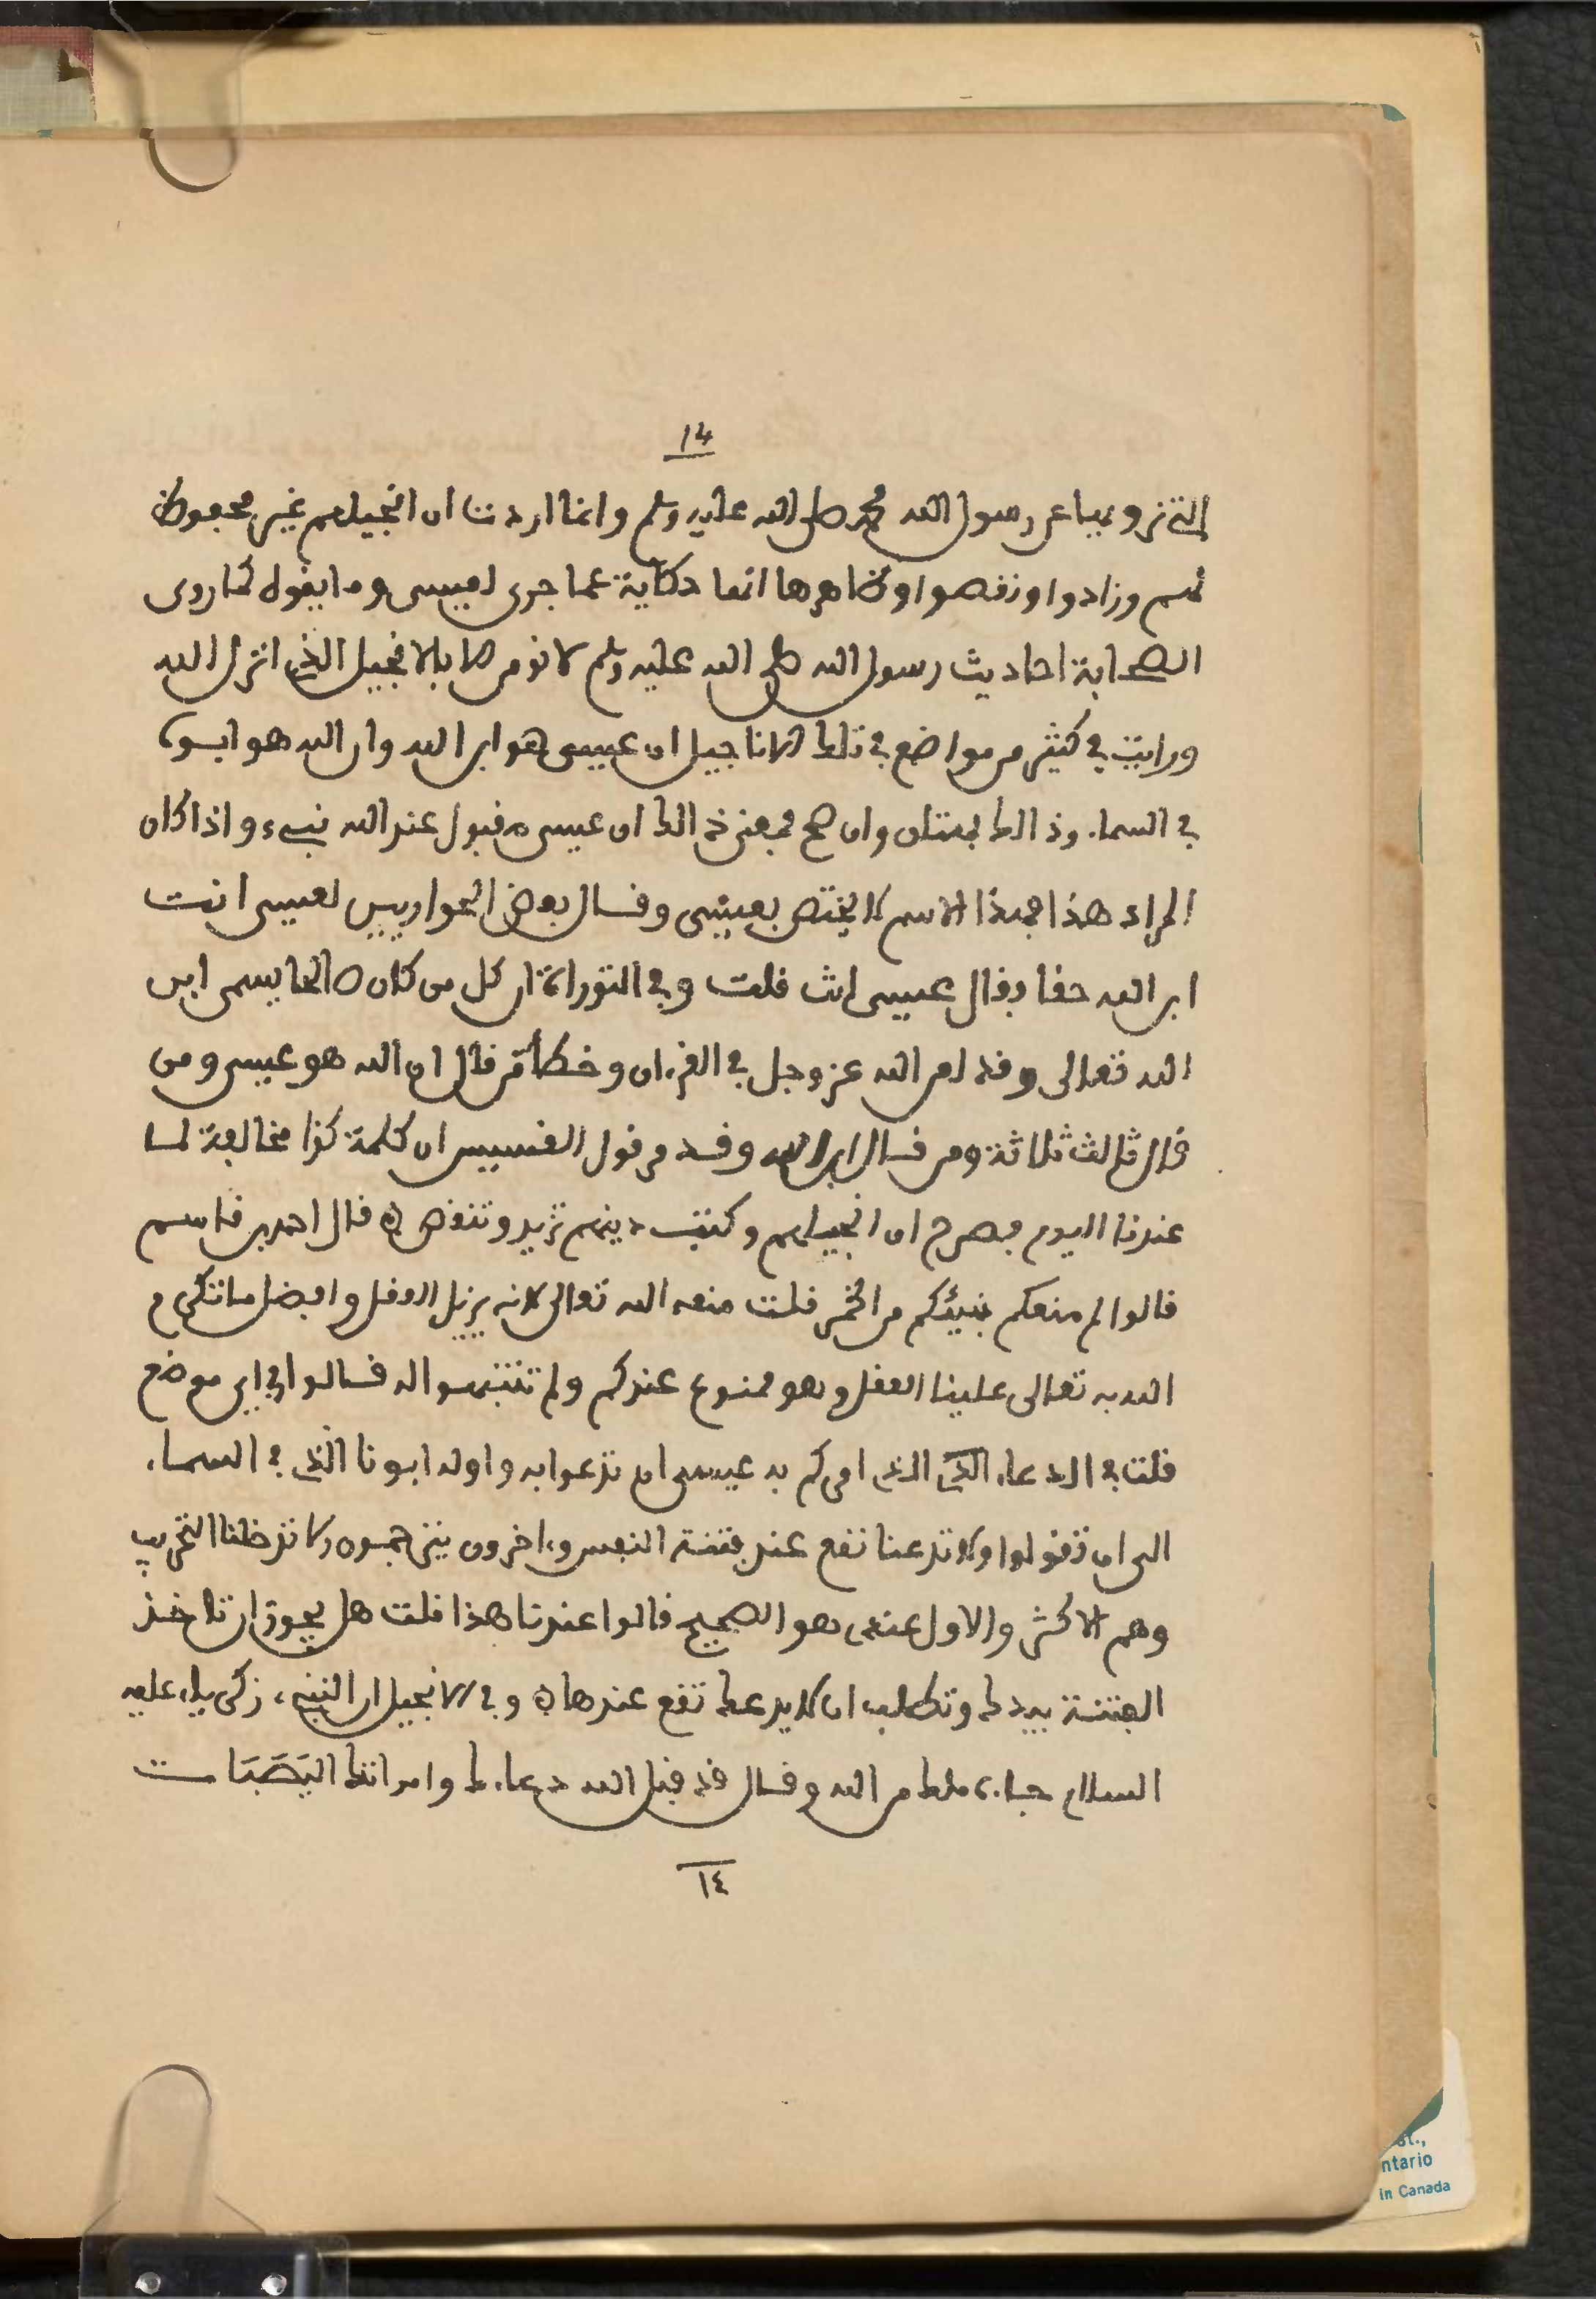 14
التي نرويها عن رسول الله محمد صلى الله عليه وسلم وانما اردت ان انجيلهم غير محفوظ
ثم وزادوا ونقصوا وظاهرها انها حكاية عما جرى لعيسى وما يقوله كما روى
الصحابة احاديث رسول الله صلى الله عليه وسلم لا نومن الا بالانجيل الذي انزل الله
ورايت في كثير من مواضع في تلك الاناجيل ان عيسى هو ابن الله وان الله هو ابوه
في السماء وذالك بهتان وان صح فمعنى ذالك ان عيسى مقبول عند الله نبيء واذا كان
المراد هذا فهذا الاسم لا يختص بعيسى وقال بعض الحواريين لعيسى انت
ابن الله حقا فقال عيسى انت قلت وفي التوراة ان كل من كان صالحا يسمى ابن
الله تعالى وقد لعن الله عز وجل في القرءان وخطأ من قال ان الله هو عيسى ومن
قال ثالث ثلاثة ومن قال ابن الله وقد من قول القسيس ان كلمة كذا مخالفة لما
عندنا اليوم فصرح ان انجيلهم وكتب دينهم تزيد وتنقص ه قال احمد بن قاسم
قالوا لم منعكم نبيئكم من الخمر قلت منعه الله تعالى لانه يزيل العقل وافضل ما تكرم
الله به تعالى علينا العقل وهو ممنوع عندكم ولم تنتهوا له قالوا في اي موضع
قلت في الدعاء الذي امركم به عيسى ان تدعوا به واوله ابونا الذي في السماء
الى ان تقولوا ولا تدعنا نقع عند فتنة النفس وءاخرون يترجمون ولا تدخلنا التجريب
وهم الاكثر والاول عندي هو الصحيح قالوا عندنا هذا قلت هل يجوز ان تاخذ
الفتنة بيدك وتطلب ان لا يدعك تقع عندها ه وفي الانجيل ان النبيء زكرياء عليه
السلام جاءه ملك من الله وقال قد قبل الله دعاءك وامراتك اليصابات
١٤
st.,
ntario
in Canada